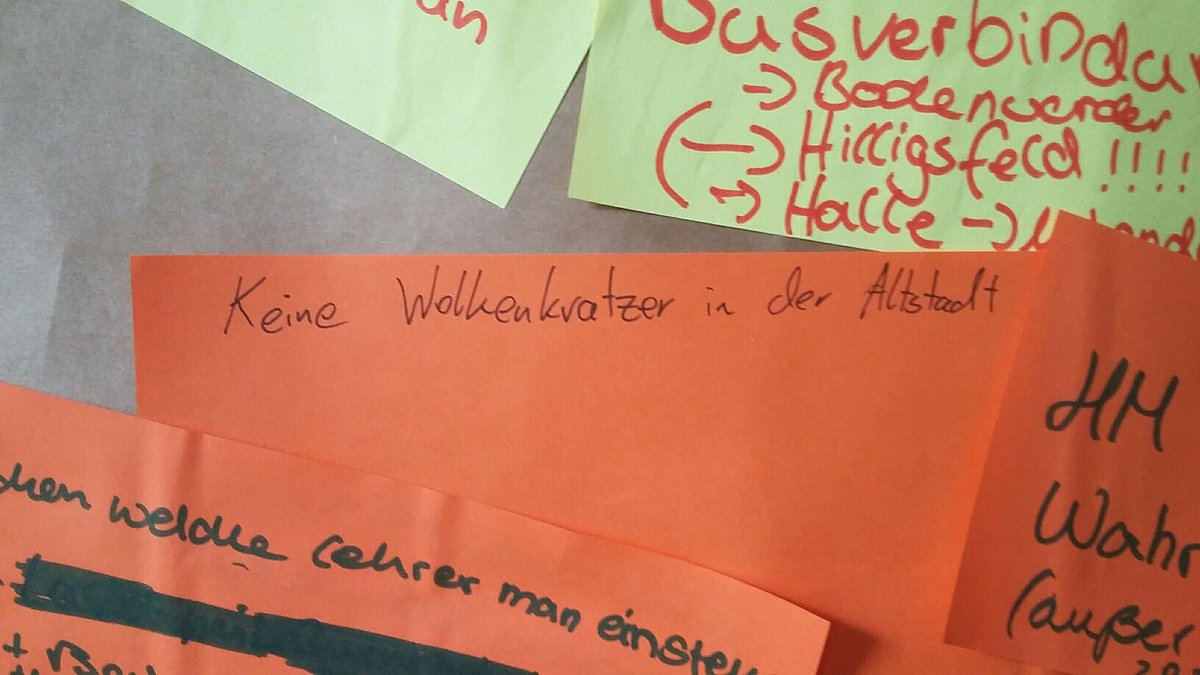 an
Busverbindun
-> Bodenwerder
(-> Hilligsfeld !!!!
-> Halle ->
Keine Wolkenkratzer in der Altstadt
HM
Wahr
(außer
welche Lehrer man einstel
+